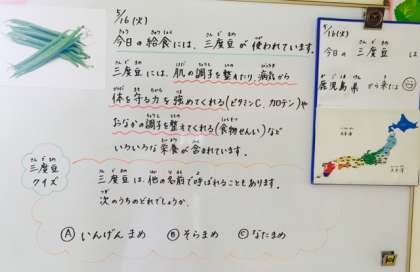 5/16(火)
今日の給食には、三度豆が使われています。
三度豆には、肌の調子を整えたり、病気から
体を守る力を強めてくれる(ビタミンC、カロテン)や
おなかの調子を整えてくれる(食物せんい)など
いろいろな栄養が含まれています。
三度豆
クイズ
三度豆は、他の名前で呼ばれることもあります。
次のうちのどれでしょうか。
Ⓐ いんげんまめ Ⓑ そらまめ Ⓒ なたまめ
5/16(火)
今日の 三度豆 は
鹿児島県 から来たよ